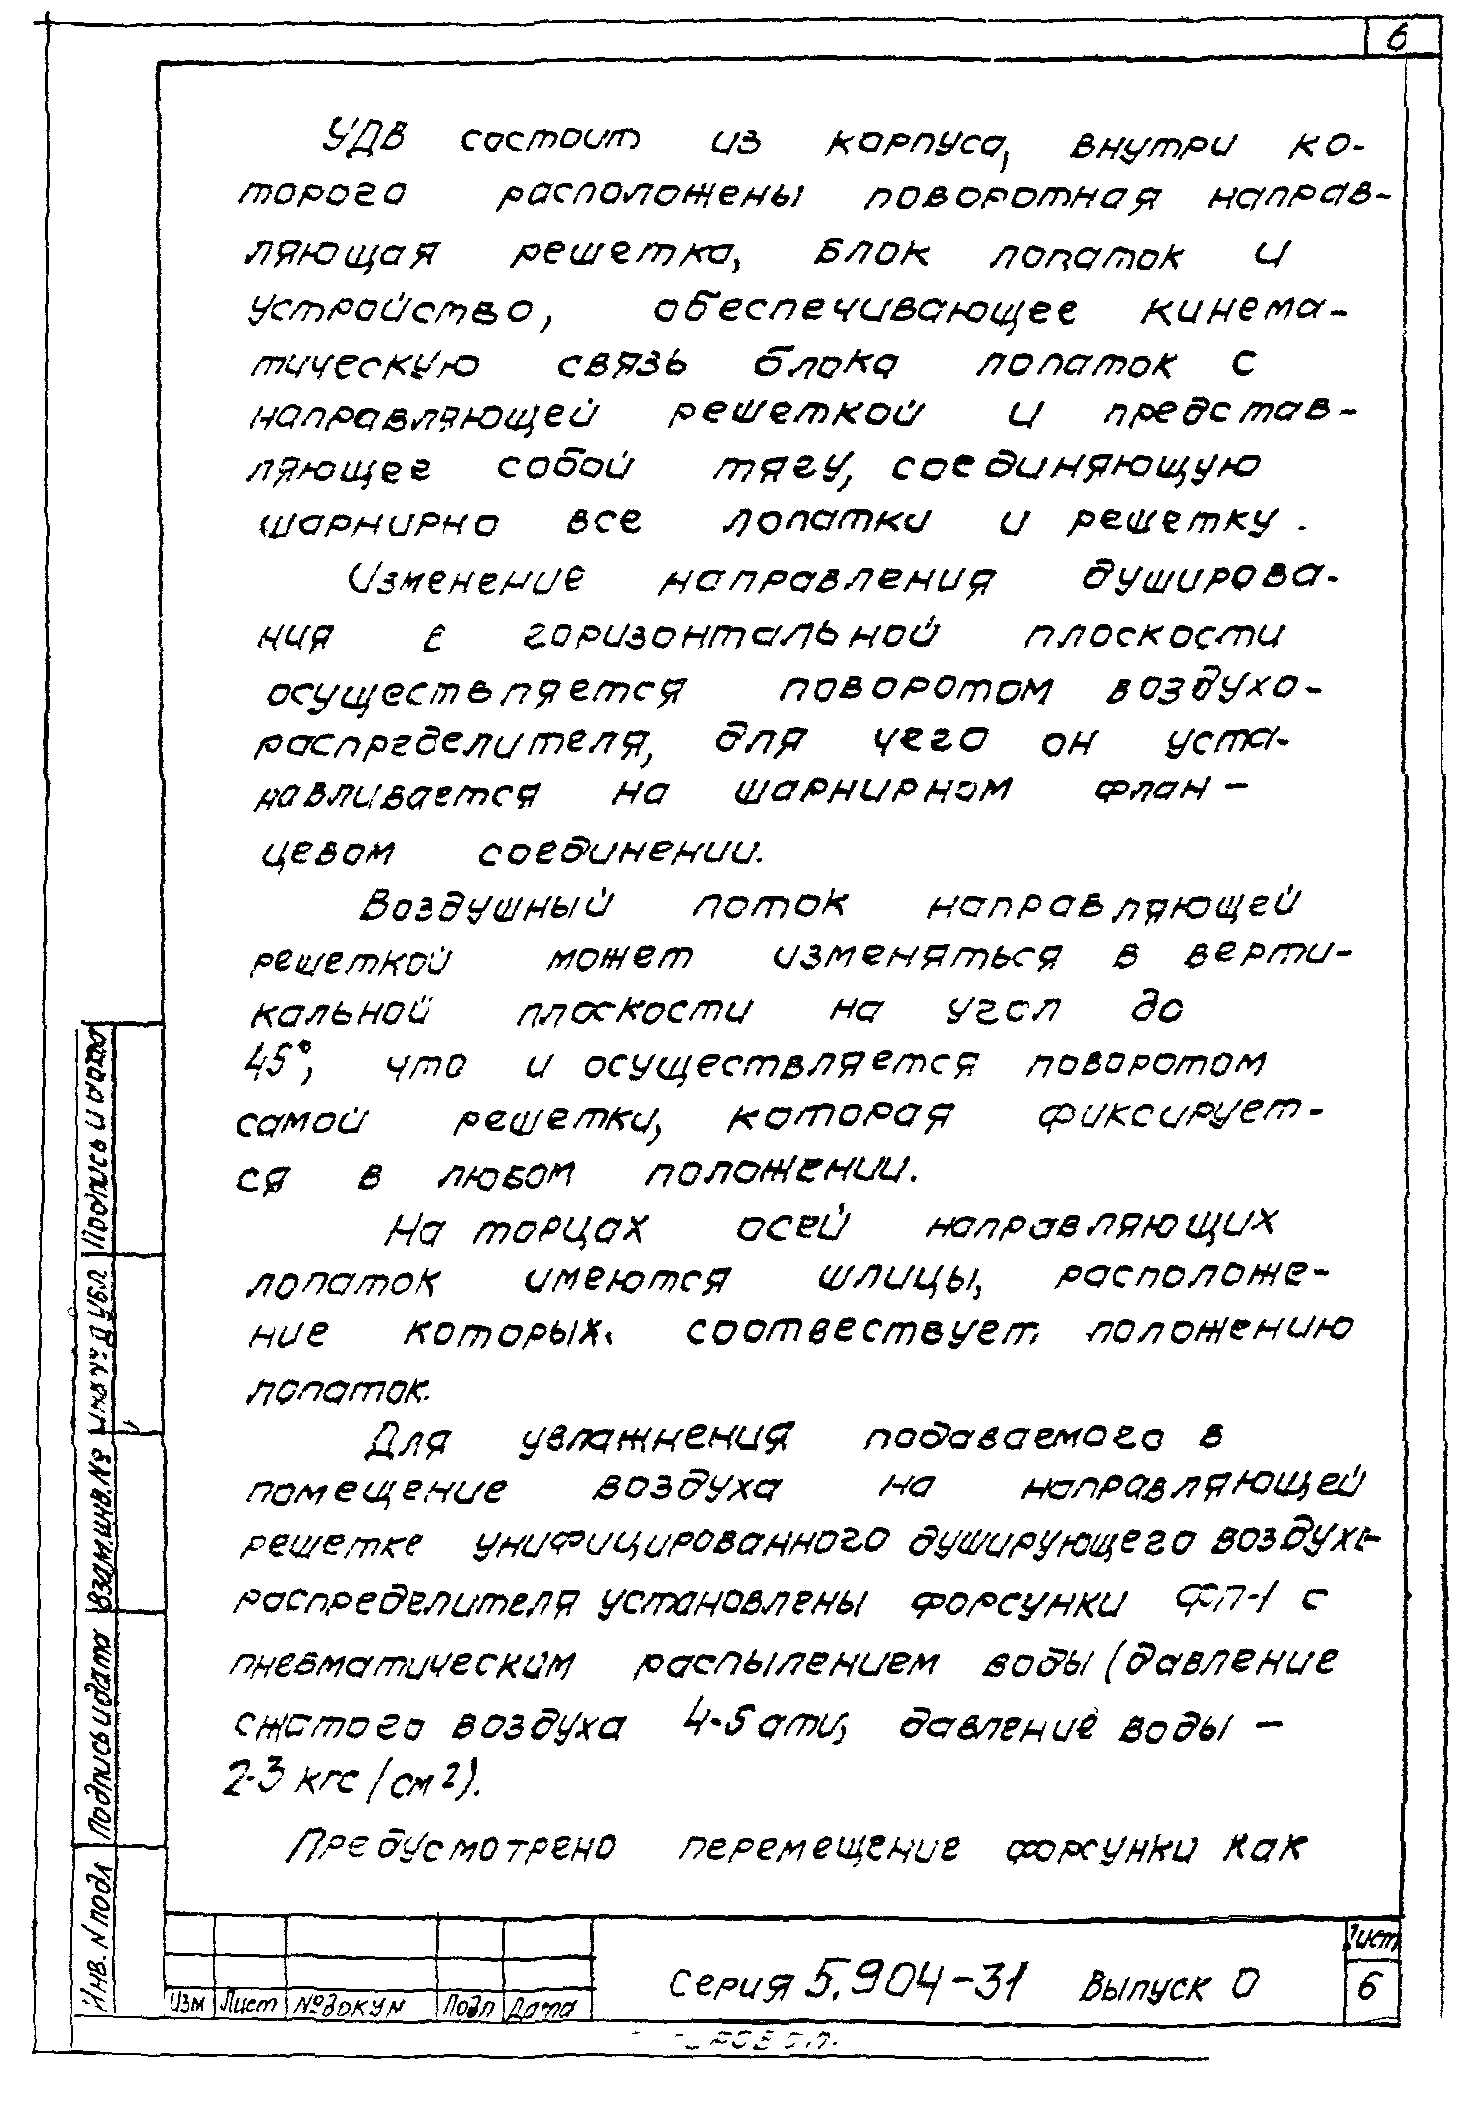 6
УДВ состоит из корпуса, внутри ко-
торого расположены поворотная направ-
ляющая решетка, блок лопаток и
устройство, обеспечивающее кинема-
тическую связь блока лопаток с
направляющей решеткой и представ-
ляющее собой тягу, соединяющую
шарнирно все лопатки и решетку.
Изменение направления душирова-
ния в горизонтальной плоскости
осуществляется поворотом воздухо-
распределителя, для чего он уста-
навливается на шарнирном флан-
цевом соединении.
Воздушный поток направляющей
решеткой может изменяться в верти-
кальной плоскости на угол до
45°, что и осуществляется поворотом
самой решетки, которая фиксирует-
ся в любом положении.
На торцах осей направляющих
лопаток имеются шлицы, расположе-
ние которых соотвествует положению
лопаток.
Для увлажнения подаваемого в
помещение воздуха на направляющей
решетке унифицированного душирующего воздухо-
распределителя установлены форсунки ФП-1 с
пневматическим распылением воды (давление
сжатого воздуха 4-5 ати, давление воды -
2-3 кгс/см²).
Предусмотрено перемещение форсунки как
Подпись и дата
Инв.№ дубл
Взам.инв.№
Подпись и дата
Инв.N подл
Изм Лист №докум Подп Дата
Серия 5.904-31 Выпуск 0
Лист
6